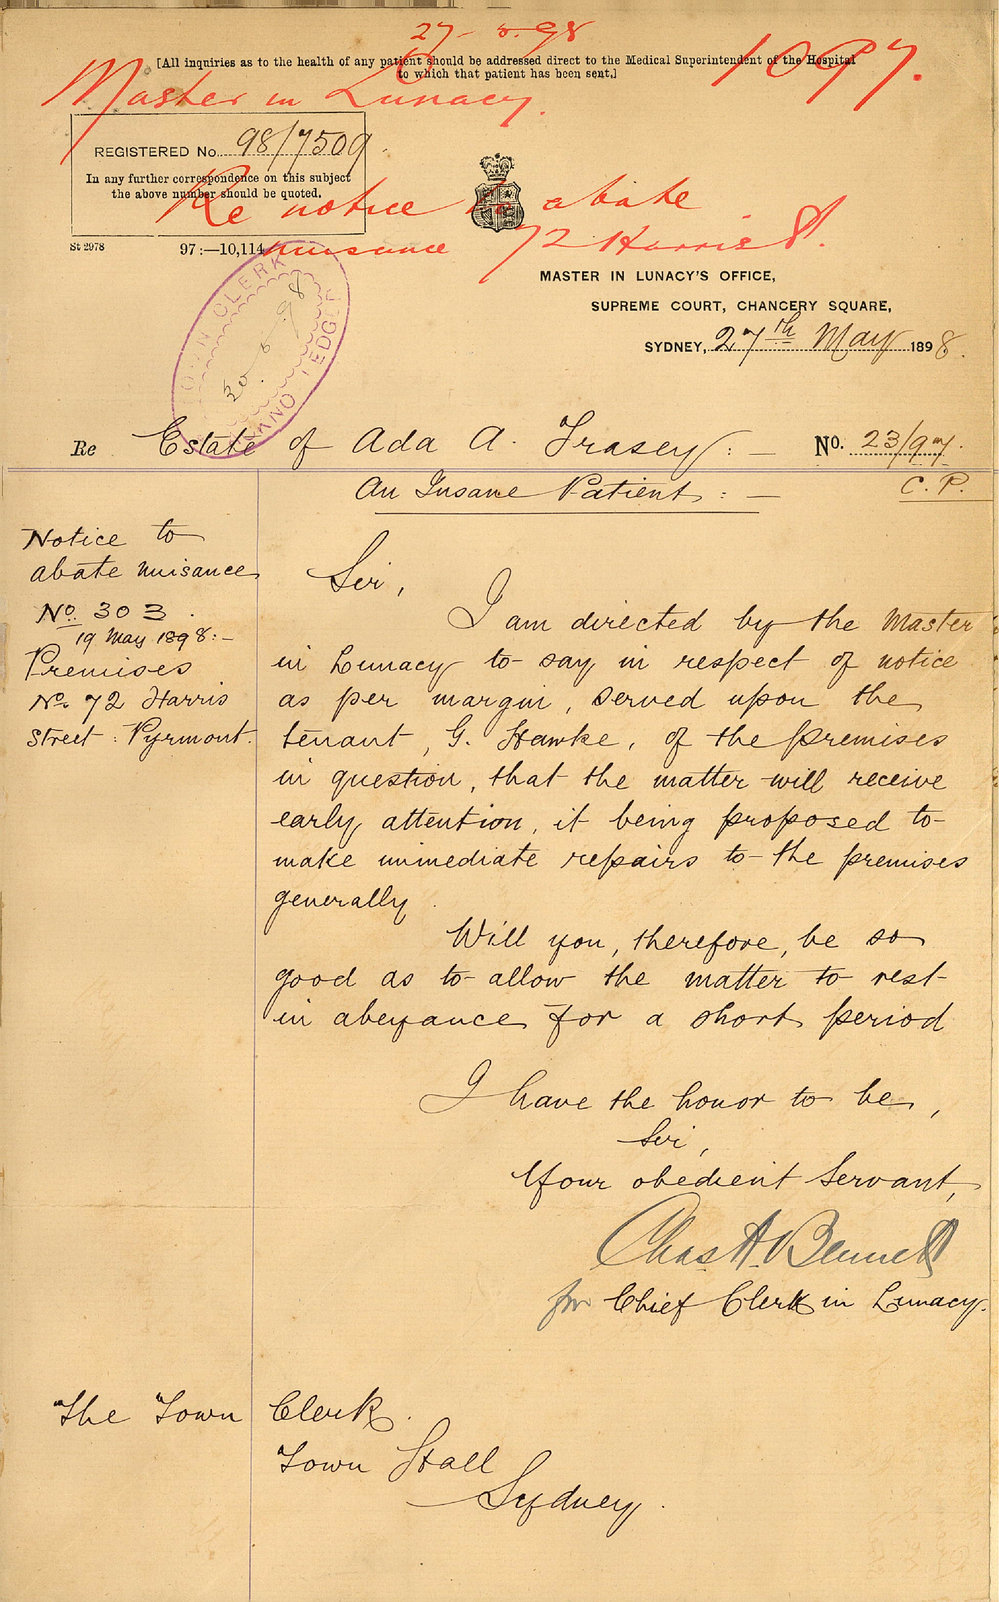 27-5-98
[All inquiries as to the health of any patient should be addressed direct to the Medical Superintendent of the Hospital
to which that patient has been sent.]
1097.
Master in Lunacy.
REGISTERED No. 98/7509.
In any further correspondence on this subject
the above number should be quoted.
Re notice to abate
nuisance 72 Harris St.
St 2978 97:—10,114
MASTER IN LUNACY'S OFFICE,
SUPREME COURT, CHANCERY SQUARE,
SYDNEY, 27th May 1898.
TOWN CLERK
30.5.98
Re Estate of Ada A. Frasey: — No. 23/97.
An Insane Patient: — C.P.
Notice to
abate nuisance
No. 303.
19 May 1898:-
Premises
No. 72 Harris
Street: Pyrmont.
Sir,
I am directed by the Master
in Lunacy to say in respect of notice
as per margin, served upon the
tenant, G. Hawke, of the premises
in question, that the matter will receive
early attention, it being proposed to
make immediate repairs to the premises
generally.
Will you, therefore, be so
good as to allow the matter to rest
in abeyance for a short period
I have the honor to be,
Sir,
Your obedient Servant,
Chas A. Bennett
for Chief Clerk in Lunacy.
The Town Clerk.
Town Hall
Sydney.